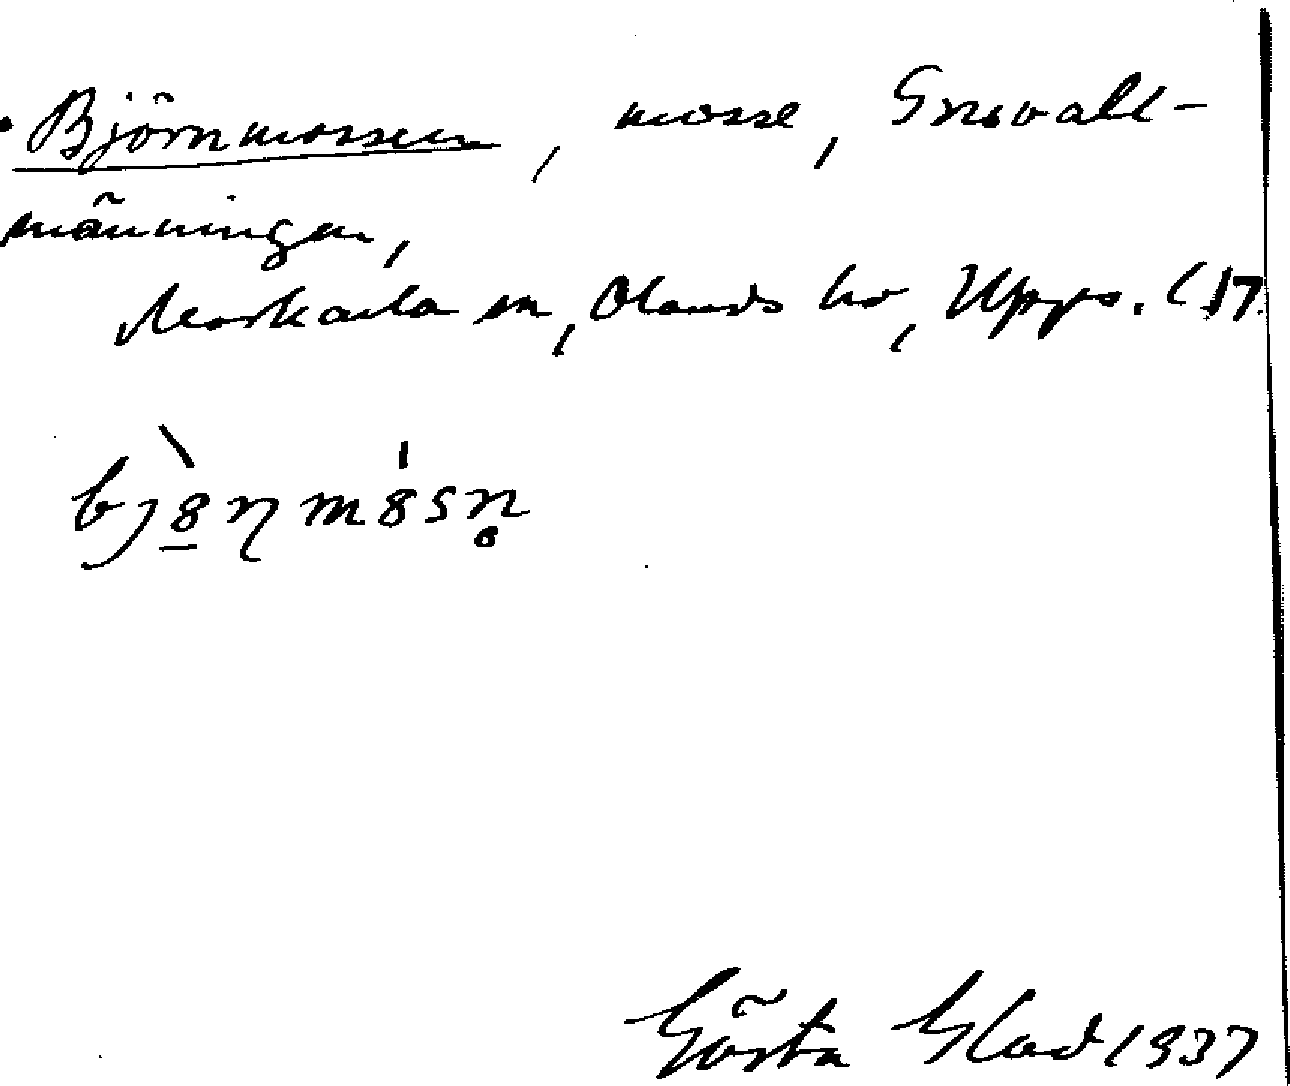 Björnmossen, mosse, Gnevalt-
männingen,
Morkarla sn, Olands hd, Upps. l 17.
bjö̀ṇmósn̥
Gösta Glad 1937